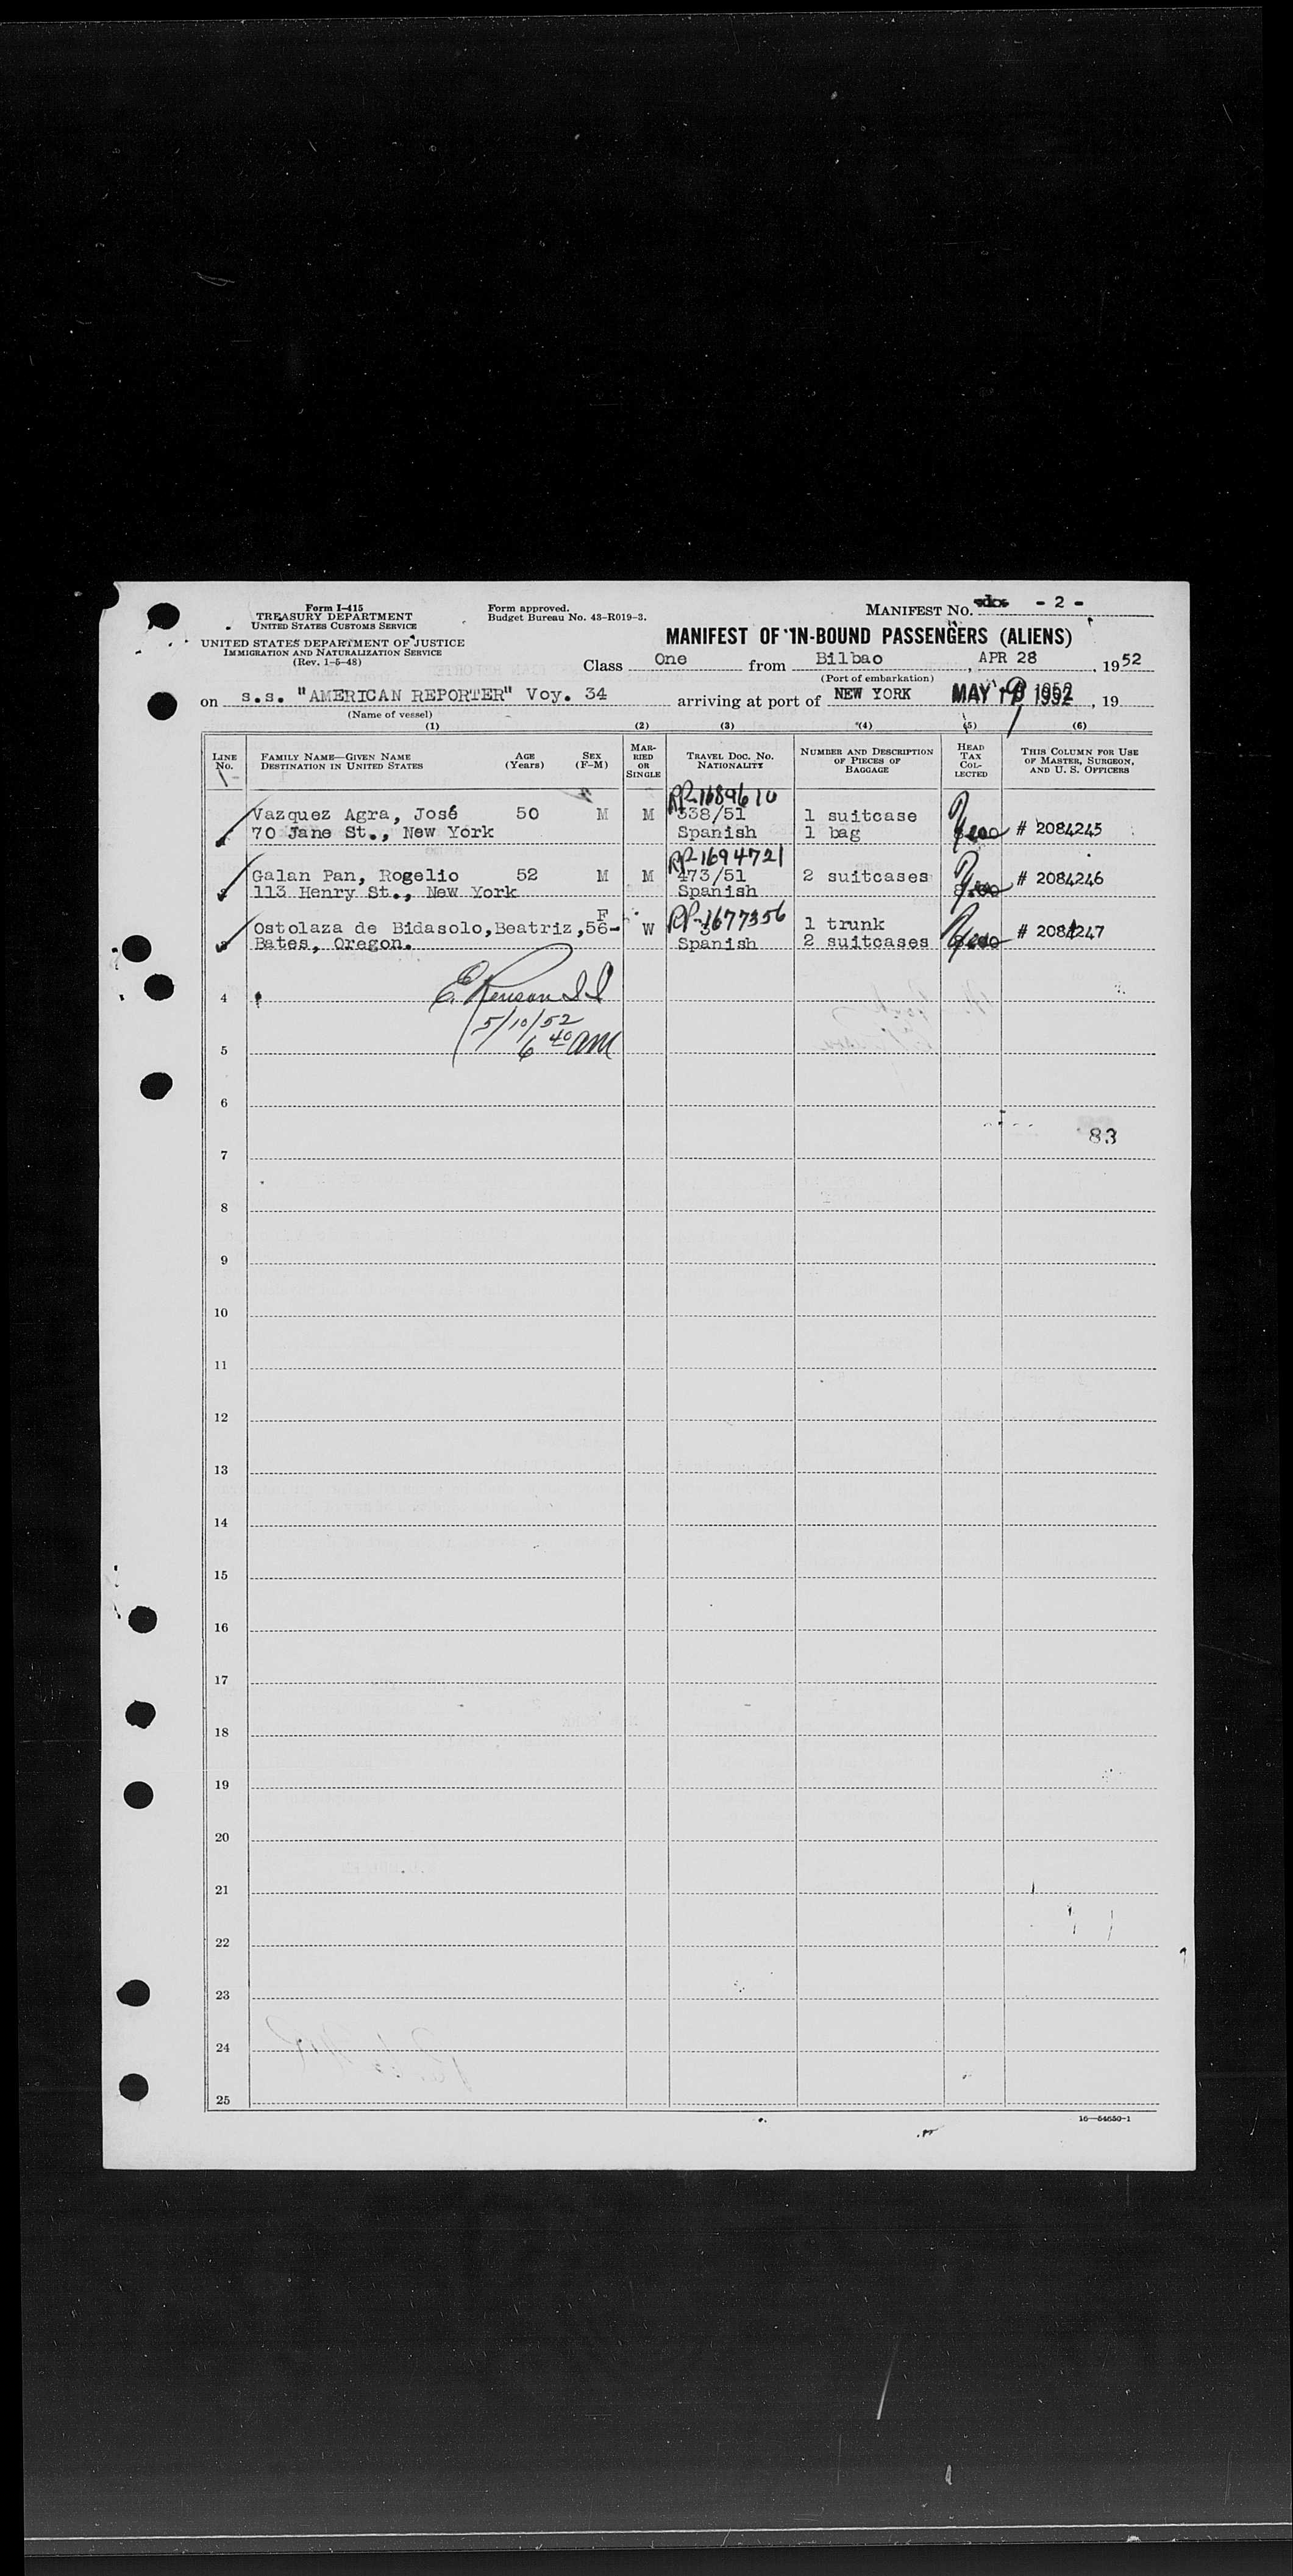 Form I-415
TREASURY DEPARTMENT
UNITED STATES CUSTOMS SERVICE
UNITED STATES DEPARTMENT OF JUSTICE
IMMIGRATION AND NATURALIZATION SERVICE
(Rev. 1-5-48)
Form approved.
Budget Bureau No. 43-R019-3.
MANIFEST NO. - 2 -
MANIFEST OF IN-BOUND PASSENGERS (ALIENS)
Class One from Bilbao, APR 28, 1952
(Port of embarkation)
on s.s. "AMERICAN REPORTER" Voy. 34 arriving at port of NEW YORK MAY 1952, 19
(Name of vessel)
(1) (2) (3) (4) (5) (6)
LINE No.
FAMILY NAME—GIVEN NAME
DESTINATION IN UNITED STATES
AGE (Years)
SEX (F-M)
MARRIED OR SINGLE
TRAVEL DOC. NO. NATIONALITY
NUMBER AND DESCRIPTION OF PIECES OF BAGGAGE
HEAD TAX COLLECTED
THIS COLUMN FOR USE OF MASTER, SURGEON, AND U. S. OFFICERS
RP-1689610
Vazquez Agra, José 50 M M 338/51 1 suitcase
70 Jane St., New York Spanish 1 bag # 2084245
RP-1694721
Galan Pan, Rogelio 52 M M 473/51 2 suitcases # 2084246
113 Henry St., New York Spanish
F
Ostolaza de Bidasolo, Beatriz, 56- W RP-1677356 1 trunk # 2084247
Bates, Oregon. Spanish 2 suitcases
4
5/10/52
5
6 40 AM
6
83
7
8
9
10
11
12
13
14
15
16
17
18
19
20
21
22
23
24
25
16—54650-1